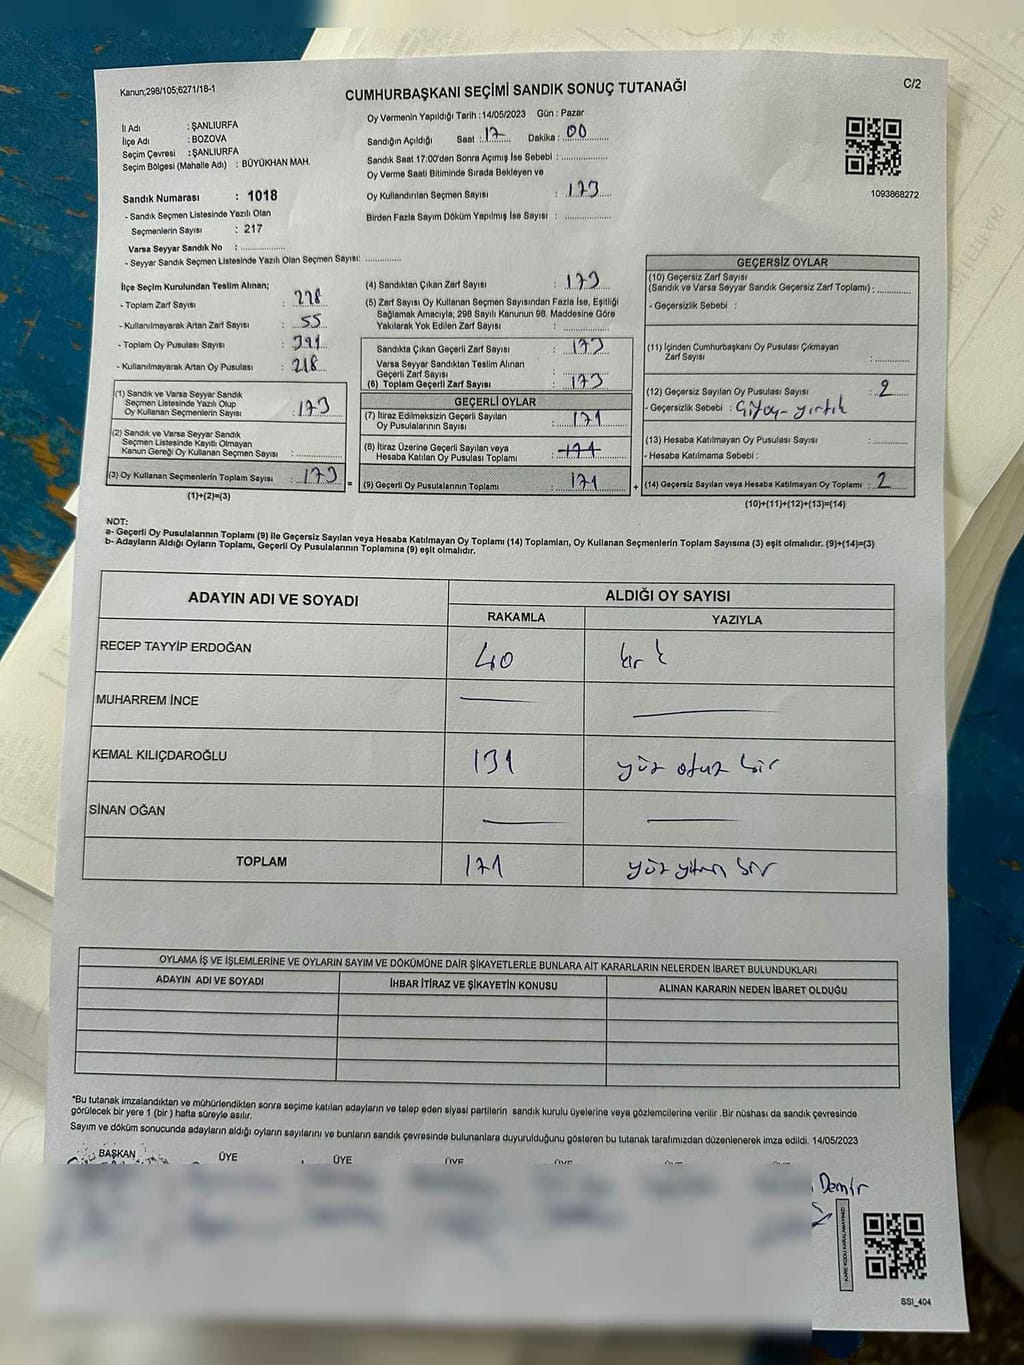 Kanun;298/105;6271/18-1
CUMHURBAŞKANI SEÇİMİ SANDIK SONUÇ TUTANAĞI
C/2
İl Adı : ŞANLIURFA
İlçe Adı : BOZOVA
Seçim Çevresi : ŞANLIURFA
Seçim Bölgesi (Mahalle Adı) : BÜYÜKHAN MAH.
Sandık Numarası : 1018
- Sandık Seçmen Listesinde Yazılı Olan
Seçmenlerin Sayısı : 217
Varsa Seyyar Sandık No : ..............
- Seyyar Sandık Seçmen Listesinde Yazılı Olan Seçmen Sayısı: ............
Oy Vermenin Yapıldığı Tarih : 14/05/2023 Gün : Pazar
Sandığın Açıldığı Saat : 17 Dakika : 00
Sandık Saat 17:00'den Sonra Açımış İse Sebebi : ..............
Oy Verme Saati Bitiminde Sırada Bekleyen ve
Oy Kullandırılan Seçmen Sayısı : 173
Birden Fazla Sayım Döküm Yapılmış İse Sayısı : ..............
1093868272
İlçe Seçim Kurulundan Teslim Alınan;
- Toplam Zarf Sayısı : 228
- Kullanılmayarak Artan Zarf Sayısı : 55
- Toplam Oy Pusulası Sayısı : 391
- Kullanılmayarak Artan Oy Pusulası : 218
(1) Sandık ve Varsa Seyyar Sandık
Seçmen Listesinde Yazılı Olup
Oy Kullanan Seçmenlerin Sayısı : 173
(2) Sandık ve Varsa Seyyar Sandık
Seçmen Listesinde Kayıtlı Olmayan
Kanun Gereği Oy Kullanan Seçmen Sayısı : ..............
(3) Oy Kullanan Seçmenlerin Toplam Sayısı : 173
(1)+(2)=(3)
(4) Sandıktan Çıkan Zarf Sayısı : 173
(5) Zarf Sayısı Oy Kullanan Seçmen Sayısından Fazla İse, Eşitliği
Sağlamak Amacıyla; 298 Sayılı Kanunun 98. Maddesine Göre
Yakılarak Yok Edilen Zarf Sayısı : ..............
Sandıkta Çıkan Geçerli Zarf Sayısı : 173
Varsa Seyyar Sandıktan Teslim Alınan
Geçerli Zarf Sayısı : ..............
(6) Toplam Geçerli Zarf Sayısı : 173
GEÇERLİ OYLAR
(7) İtiraz Edilmeksizin Geçerli Sayılan
Oy Pusulalarının Sayısı : 171
(8) İtiraz Üzerine Geçerli Sayılan veya
Hesaba Katılan Oy Pusulası Toplamı : 171
= (9) Geçerli Oy Pusulalarının Toplamı : 171
GEÇERSİZ OYLAR
(10) Geçersiz Zarf Sayısı
(Sandık ve Varsa Seyyar Sandık Geçersiz Zarf Toplamı) : ..............
- Geçersizlik Sebebi :
(11) İçinden Cumhurbaşkanı Oy Pusulası Çıkmayan
Zarf Sayısı : ..............
(12) Geçersiz Sayılan Oy Pusulası Sayısı : 2
- Geçersizlik Sebebi : yırtık
(13) Hesaba Katılmayan Oy Pusulası Sayısı : ..............
- Hesaba Katılmama Sebebi :
+ (14) Geçersiz Sayılan veya Hesaba Katılmayan Oy Toplamı : 2
(10)+(11)+(12)+(13)=(14)
NOT:
a- Geçerli Oy Pusulalarının Toplamı (9) ile Geçersiz Sayılan veya Hesaba Katılmayan Oy Toplamı (14) Toplamları, Oy Kullanan Seçmenlerin Toplam Sayısına (3) eşit olmalıdır. (9)+(14)=(3)
b- Adayların Aldığı Oyların Toplamı, Geçerli Oy Pusulalarının Toplamına (9) eşit olmalıdır.
ADAYIN ADI VE SOYADI
ALDIĞI OY SAYISI
RAKAMLA YAZIYLA
RECEP TAYYİP ERDOĞAN 40 kırk
MUHARREM İNCE
KEMAL KILIÇDAROĞLU 131 yüz otuz bir
SİNAN OĞAN
TOPLAM 171 yüz yetmiş bir
OYLAMA İŞ VE İŞLEMLERİNE VE OYLARIN SAYIM VE DÖKÜMÜNE DAİR ŞİKAYETLERLE BUNLARA AİT KARARLARIN NELERDEN İBARET BULUNDUKLARI
ADAYIN ADI VE SOYADI İHBAR İTİRAZ VE ŞİKAYETİN KONUSU ALINAN KARARIN NEDEN İBARET OLDUĞU
*Bu tutanak imzalandıktan ve mühürlendikten sonra seçime katılan adayların ve talep eden siyasi partilerin sandık kurulu üyelerine veya gözlemcilerine verilir .Bir nüshası da sandık çevresinde
görülecek bir yere 1 (bir ) hafta süreyle asılır.
Sayım ve döküm sonucunda adayların aldığı oyların sayılarını ve bunların sandık çevresinde bulunanlara duyurulduğunu gösteren bu tutanak tarafımızdan düzenlenerek imza edildi. 14/05/2023
BAŞKAN ÜYE ÜYE ÜYE ÜYE ÜYE ÜYE
Demir
KARE KODU KARALAMAYINIZ!
SSI_404